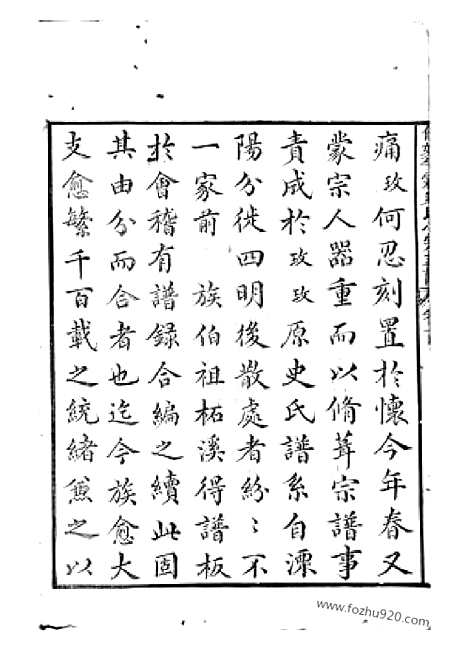 痛玫何忍刻置於懷今年春又
蒙宗人器重而以脩葺宗譜事
責成於玫玫原史氏譜系自溧
陽分徙四明後散處者紛〻不
一家前 族伯祖柘溪得譜板
於會稽有譜録合編之續此固
其由分而合者也迄今族愈大
支愈繁千百載之統緒㒃之以
www.fozhu920.com